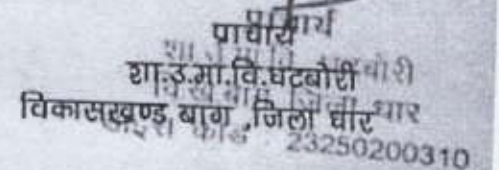 प्राचार्य
शा.उ.मा.वि.घटबोरी
विकासखण्ड बाग ,जिला धार
23250200310